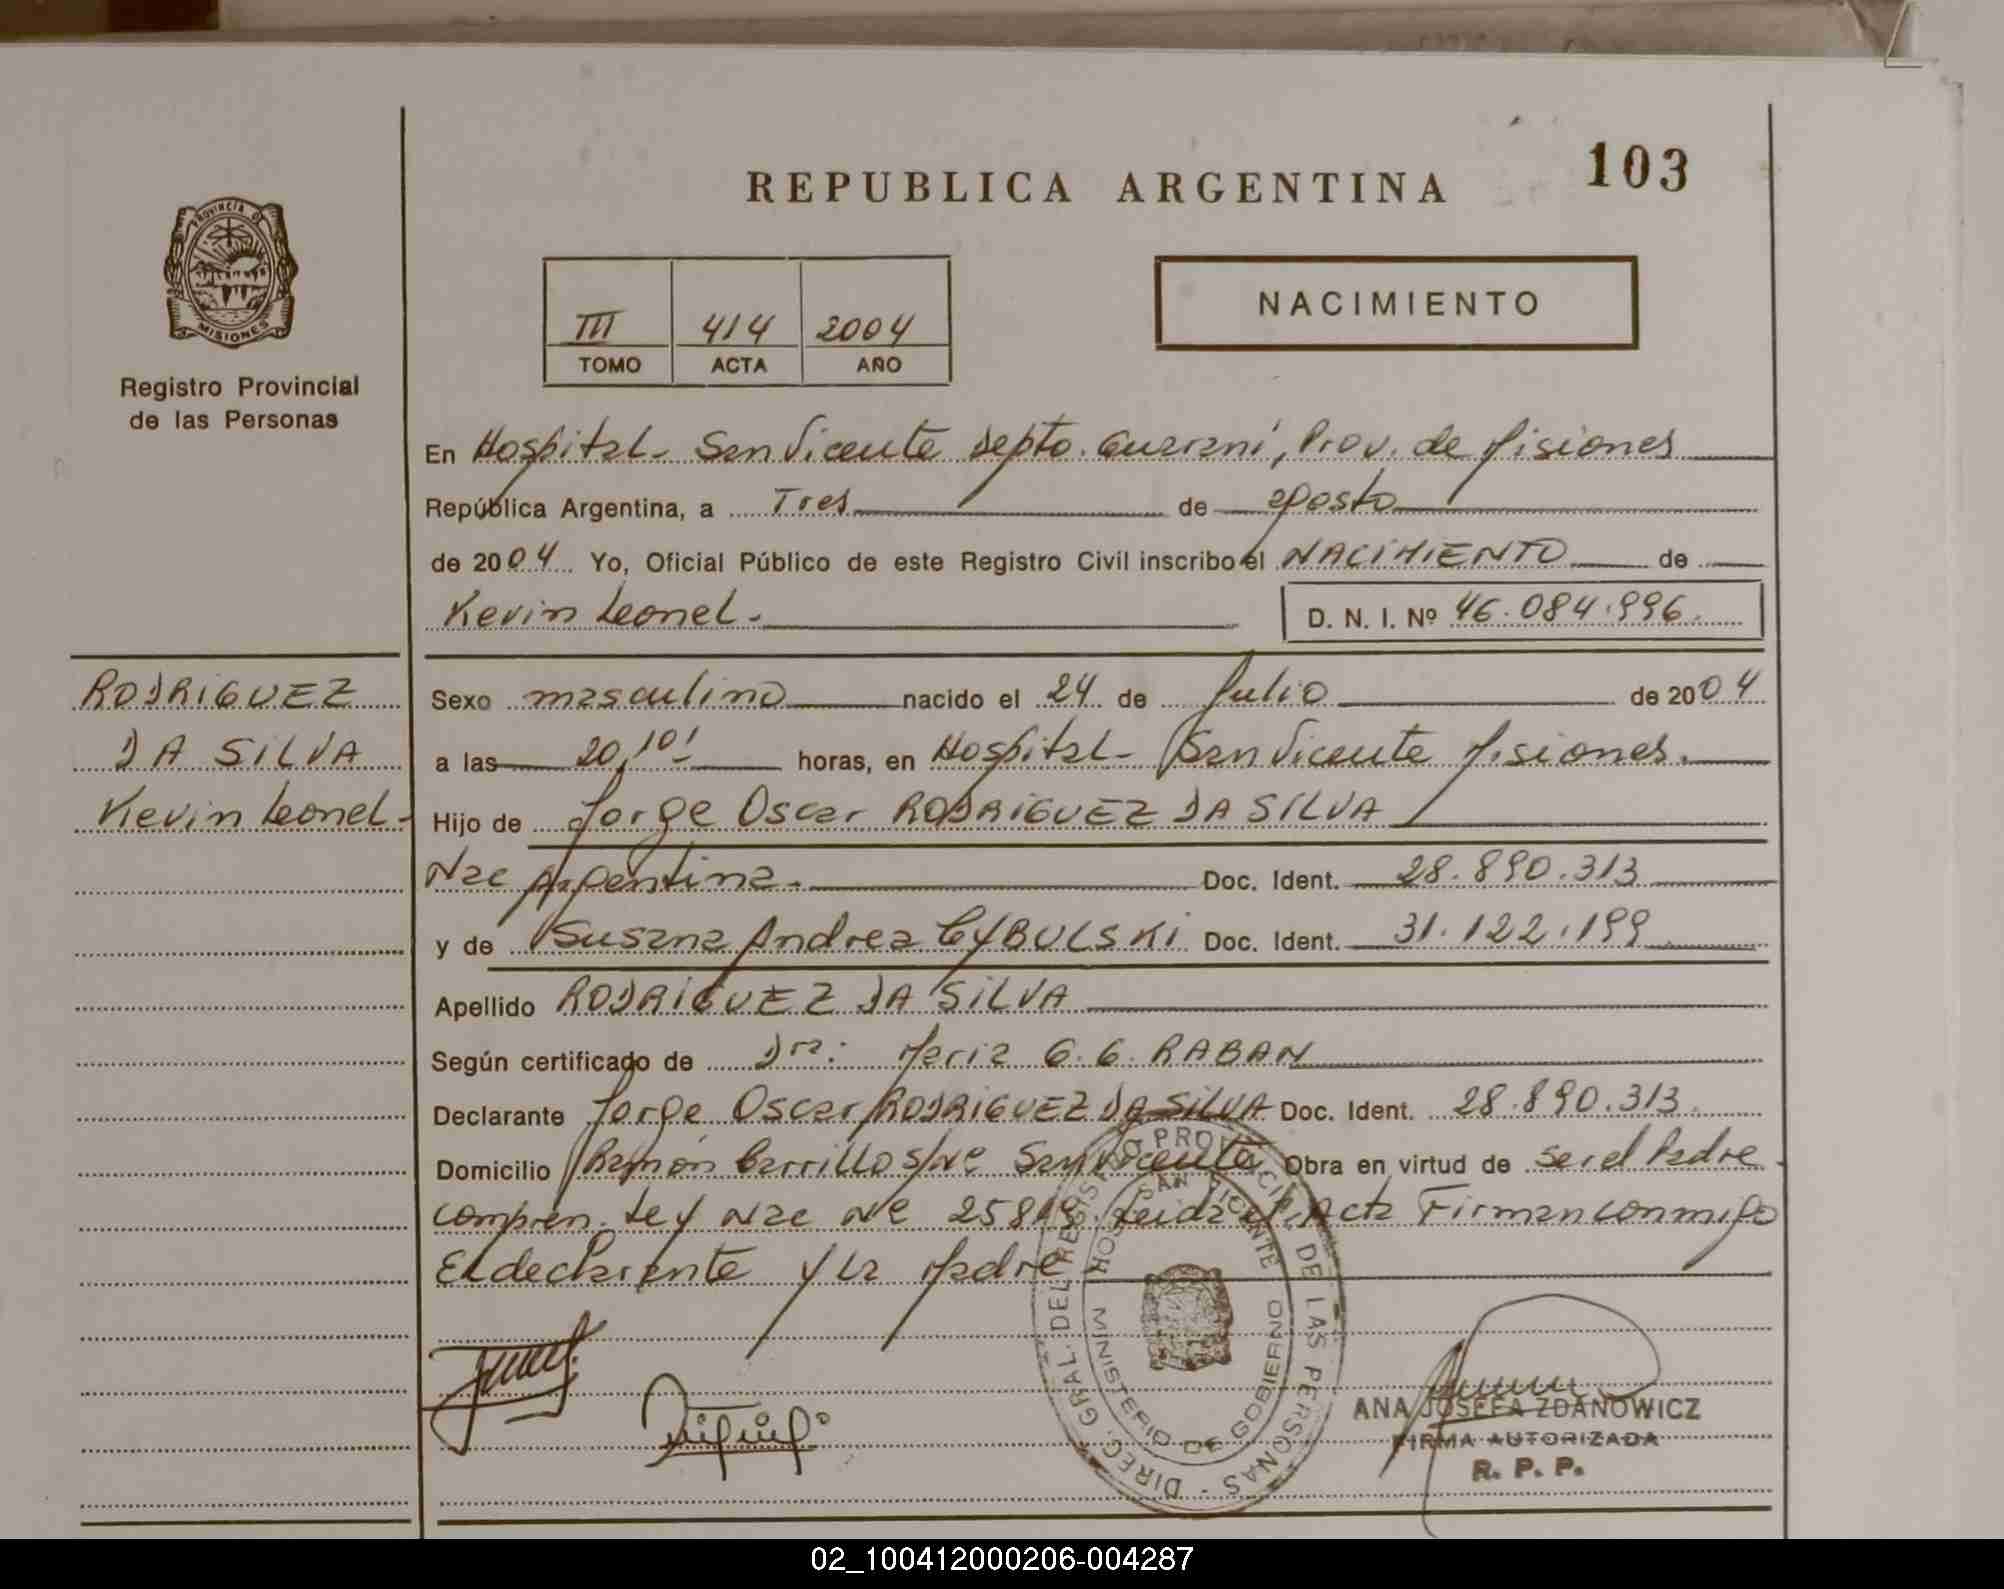 REPUBLICA ARGENTINA
103
PROVINCIA DE
MISIONES
Registro Provincial
de las Personas
III 414 2004
TOMO ACTA AÑO
NACIMIENTO
En Hospital - San Vicente Depto. Guaraní, Prov. de Misiones
República Argentina, a Tres de agosto
de 2004 Yo, Oficial Público de este Registro Civil inscribo el NACIMIENTO de
Kevin Leonel.
D. N. I. Nº 46.084.996.
RODRIGUEZ
DA SILVA
Kevin Leonel-
Sexo masculino nacido el 24 de Julio de 2004
a las 20,10' horas, en Hospital - San Vicente Misiones.
Hijo de Jorge Oscar RODRIGUEZ DA SILVA
Nac Argentina. Doc. Ident. 28.890.313
y de Susana Andrea CYBULSKI Doc. Ident. 31.122.199
Apellido RODRIGUEZ DA SILVA
Según certificado de Dra: Maria G. G. RABAN
Declarante Jorge Oscar RODRIGUEZ DA SILVA Doc. Ident. 28.890.313.
Domicilio Ramón Carrillo s/Nº San Vicente Obra en virtud de ser el Padre.
compren. Ley Nac Nº 25819. Leida el Acta Firman conmigo
El declarante y la Madre
DIREC. GRAL. DEL REGISTRO PROVINCIAL DE LAS PERSONAS -
HOSP. SAN VICENTE
MINISTERIO DE GOBIERNO
ANA JOSEFA ZDANOWICZ
FIRMA AUTORIZADA
R. P. P.
02_100412000206-004287